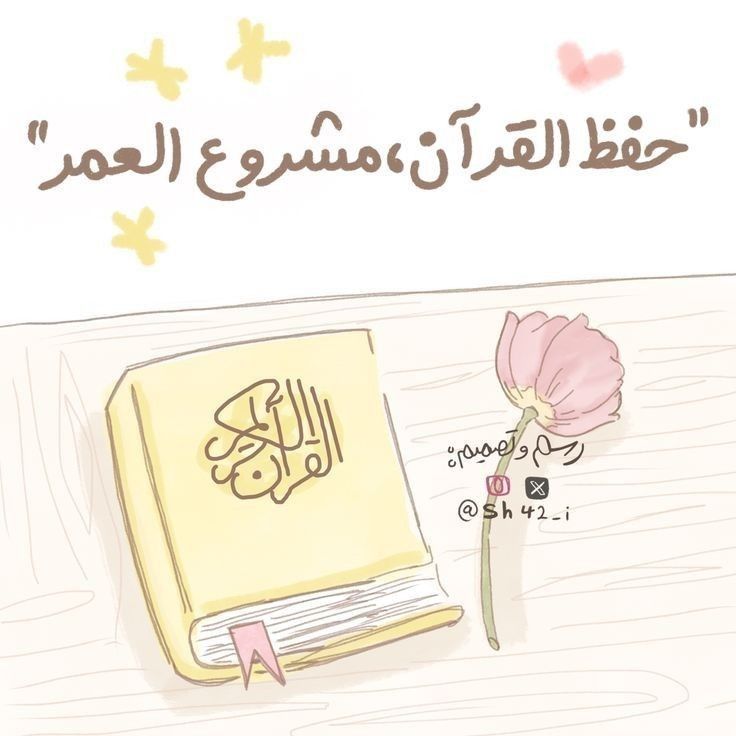 "حفظ القرآن، مشروع العمر"
القرآن الكريم
رسم وتصميم:
@sh42_i